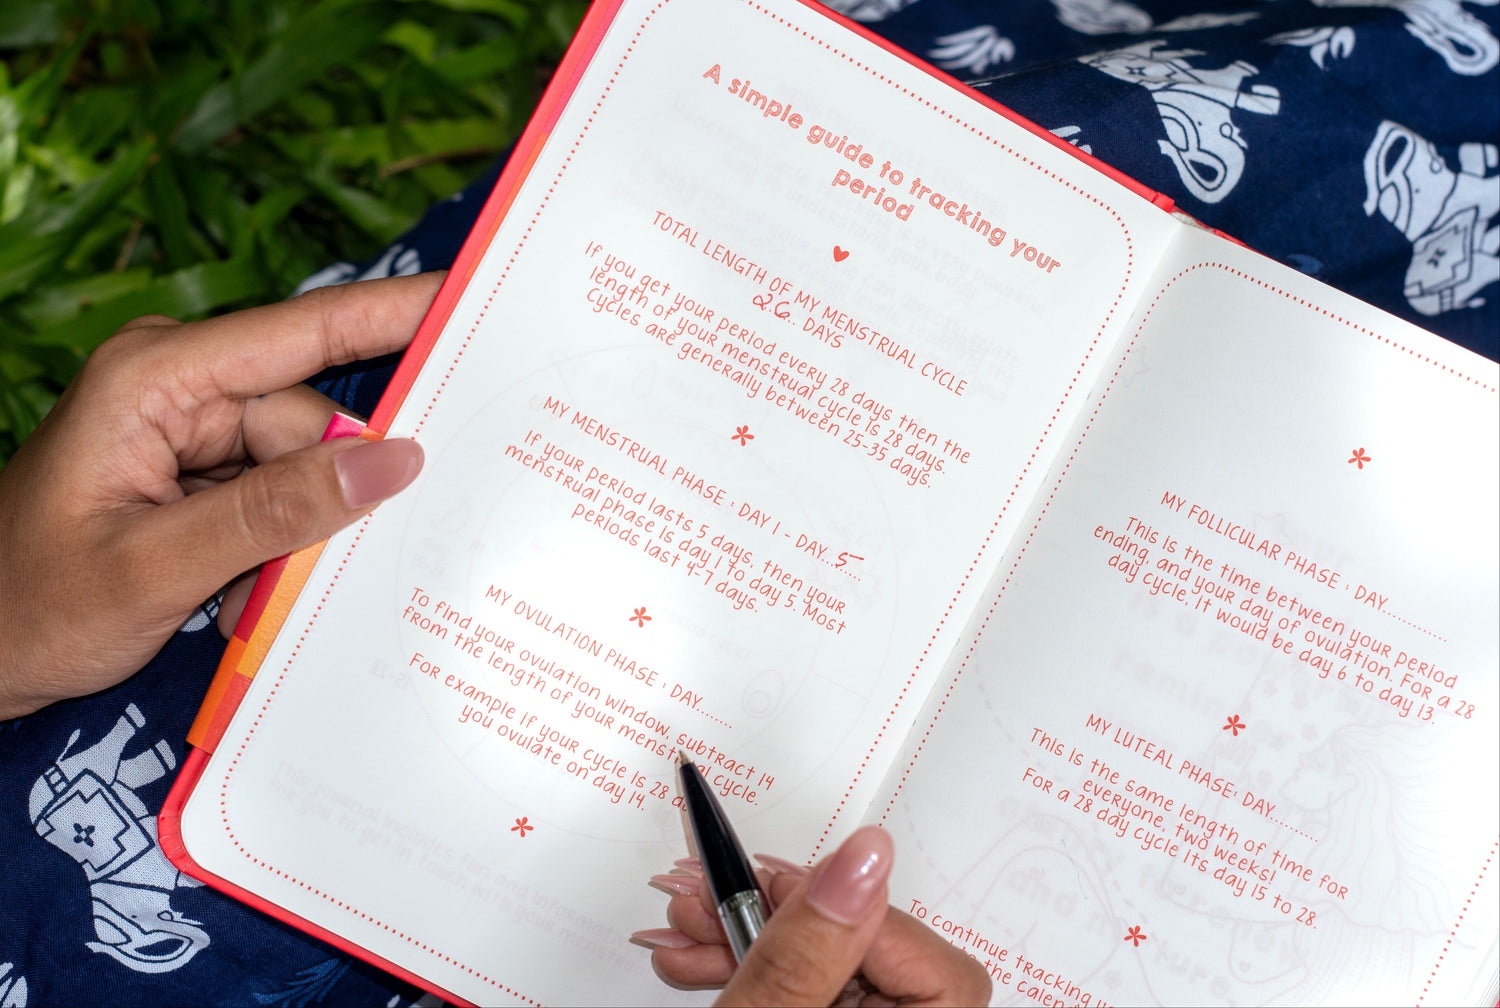 A simple guide to tracking your
period
TOTAL LENGTH OF MY MENSTRUAL CYCLE
26 DAYS
If you get your period every 28 days then the
length of your menstrual cycle is 28 days.
Cycles are generally between 25-35 days.
MY MENSTRUAL PHASE : DAY 1 - DAY...5....
If your period lasts 5 days, then your
menstrual phase is day 1 to day 5. Most
periods last 4-7 days.
MY OVULATION PHASE : DAY.......
To find your ovulation window, subtract 14
from the length of your menstrual cycle.
For example if your cycle is 28
you ovulate on day 14.
MY FOLLICULAR PHASE : DAY............
This is the time between your period
ending, and your day of ovulation. For a 28
day cycle, it would be day 6 to day 13.
MY LUTEAL PHASE: DAY.........
This is the same length of time for
everyone, two weeks!
For a 28 day cycle its day 15 to 28.
To continue tracking
the